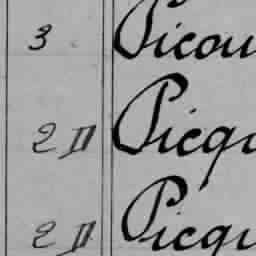 3 Picou
2 II Picq
2 II Picq